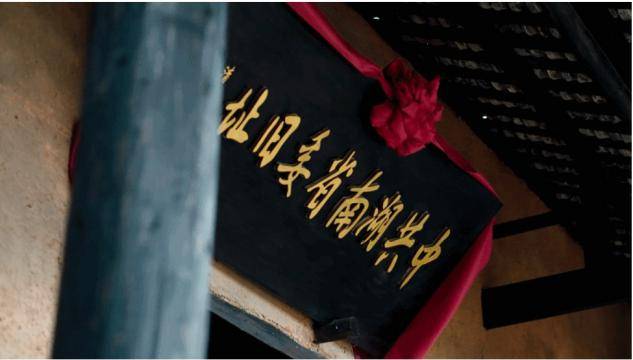 中共湖南省委旧址